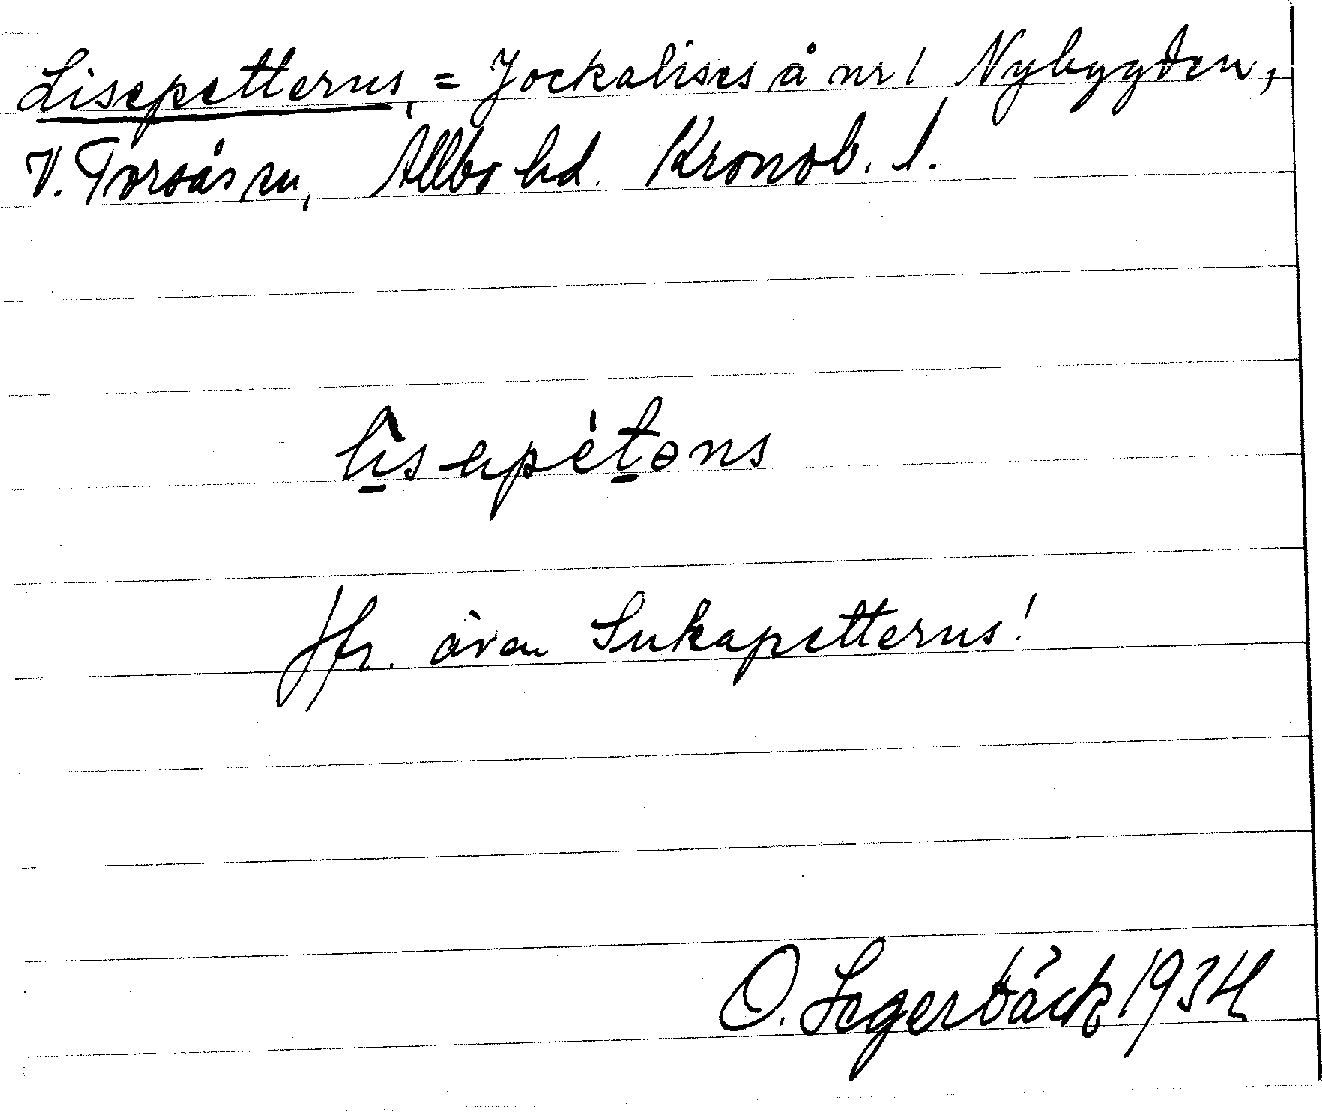 Lisepetterns, = Jockalises å nr 1 Nybygden,
V. Torsås sn, Allbo hd. Kronob. l.
lìsepétəns
Jfr. även Sukapetterns!
O. Segerbäck 1934